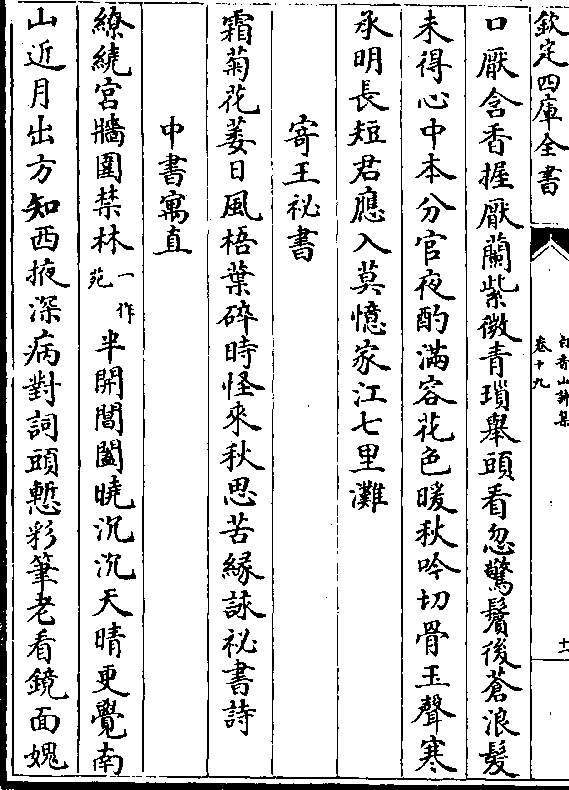 欽定四庫全書
白香山詩集
卷十九
十二
口厭含香握厭蘭紫微青瑣舉頭看忽驚鬢後蒼浪髮
未得心中本分官夜酌滿容花色暖秋吟切骨玉聲寒
承明長短君應入莫憶家江七里灘
寄王祕書
霜菊花萎日風梧葉碎時怪來秋思苦緣詠祕書詩
中書寓直
繚繞宮牆圍禁林一作苑半開閶闔曉沉沉天晴更覺南
山近月出方知西掖深病對詞頭慙彩筆老看鏡面媿